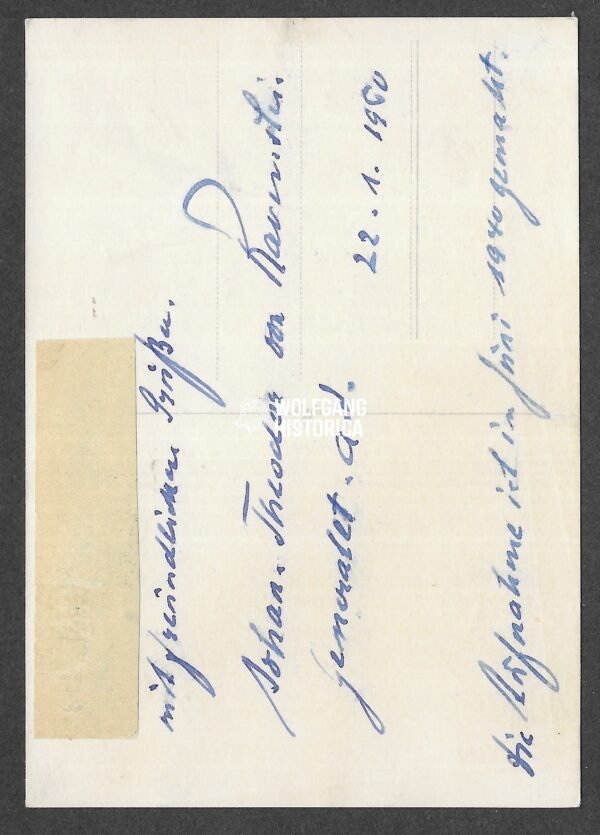 mit freundlichen Grüßen.
Johan-Theodor von Ravenstein.
Generallt. a.D.
22.1.
Die Aufnahme ist im Juni 1940 gemacht.
WOLFGANG
HISTORICA